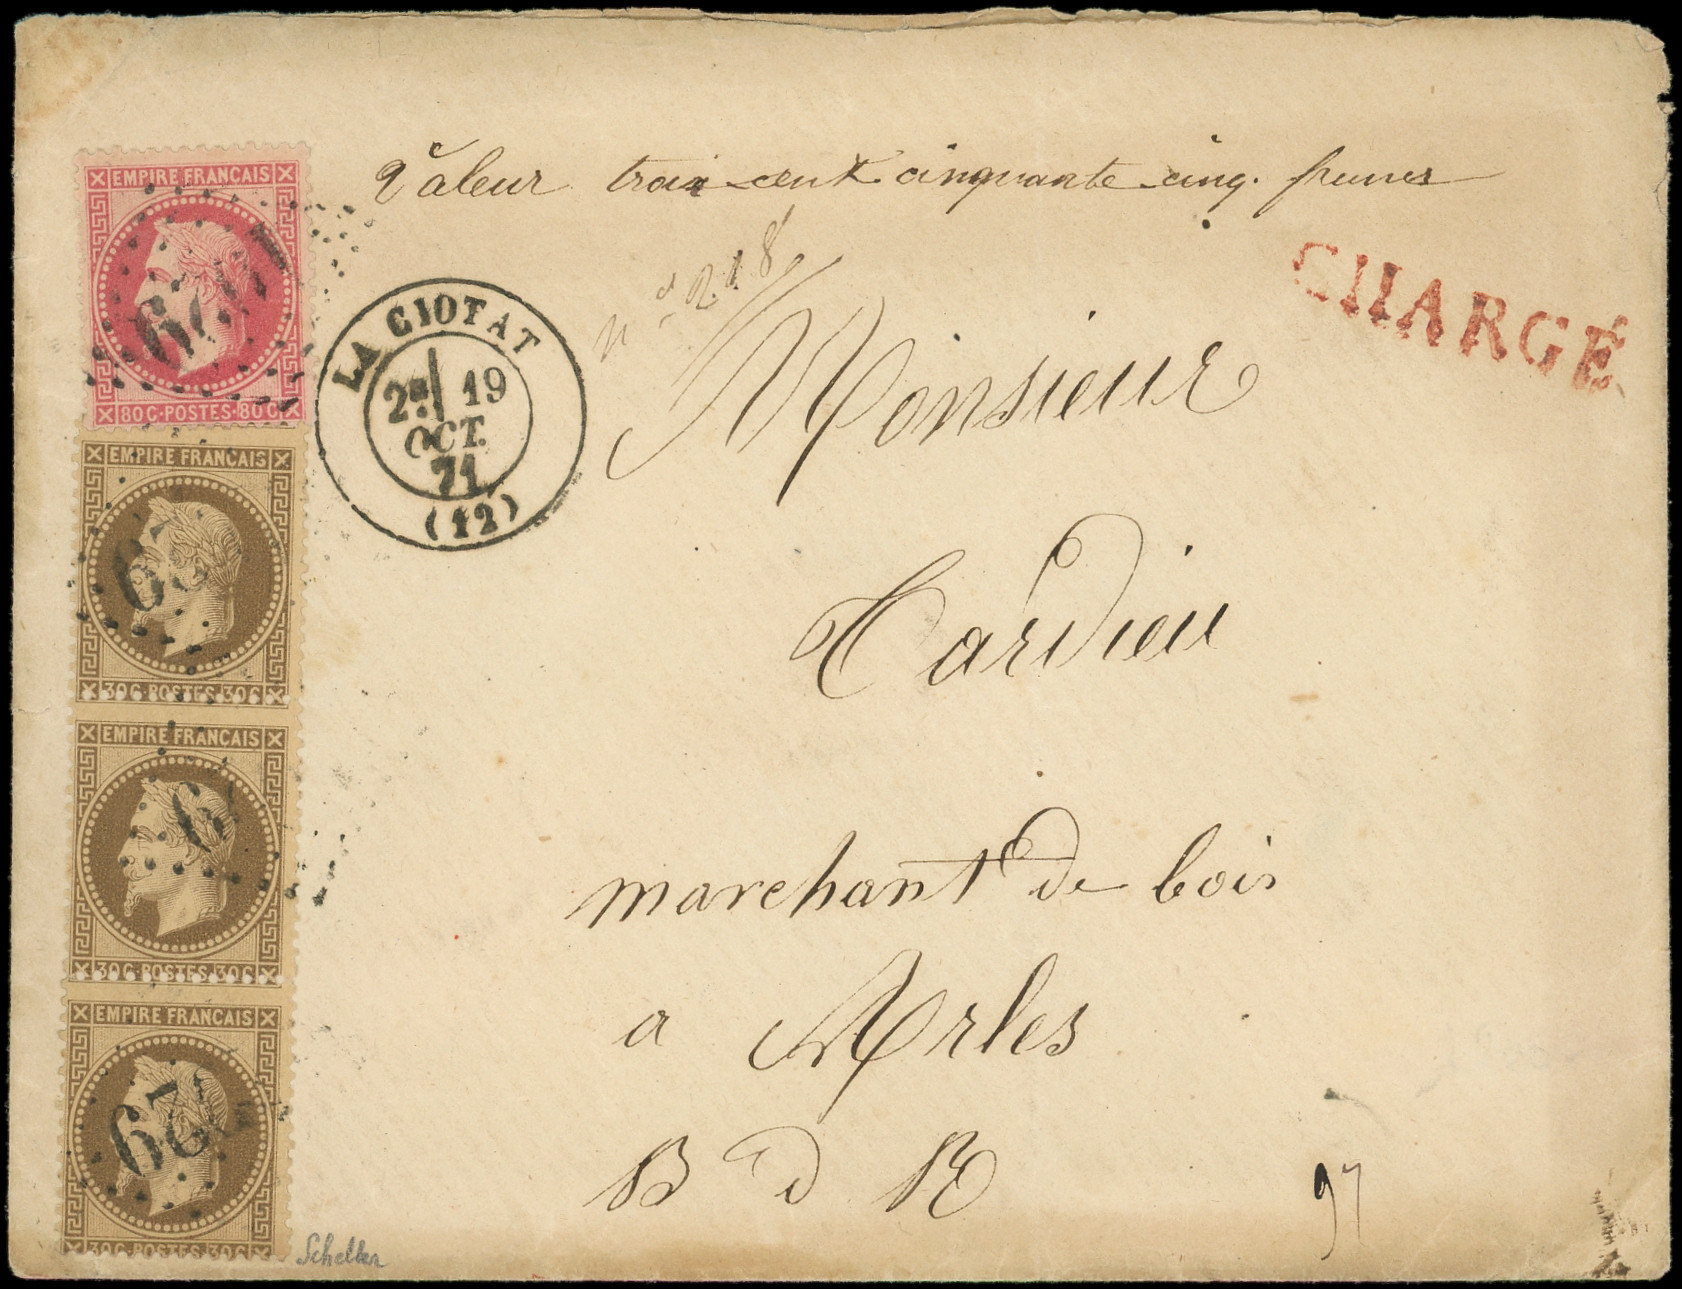 Valeur trois cent cinquante cinq. francs
CHARGÉ
n° 218
EMPIRE FRANÇAIS
80 C·POSTES·80 C
LA CIOTAT
2E/ 19
OCT.
71
(12)
Monsieur
Tardieu
marchant de bois
a Arles
B d R
97
EMPIRE FRANÇAIS
30 C·POSTES·30 C
EMPIRE FRANÇAIS
30 C·POSTES·30 C
EMPIRE FRANÇAIS
30 C·POSTES·30 C
Scheller